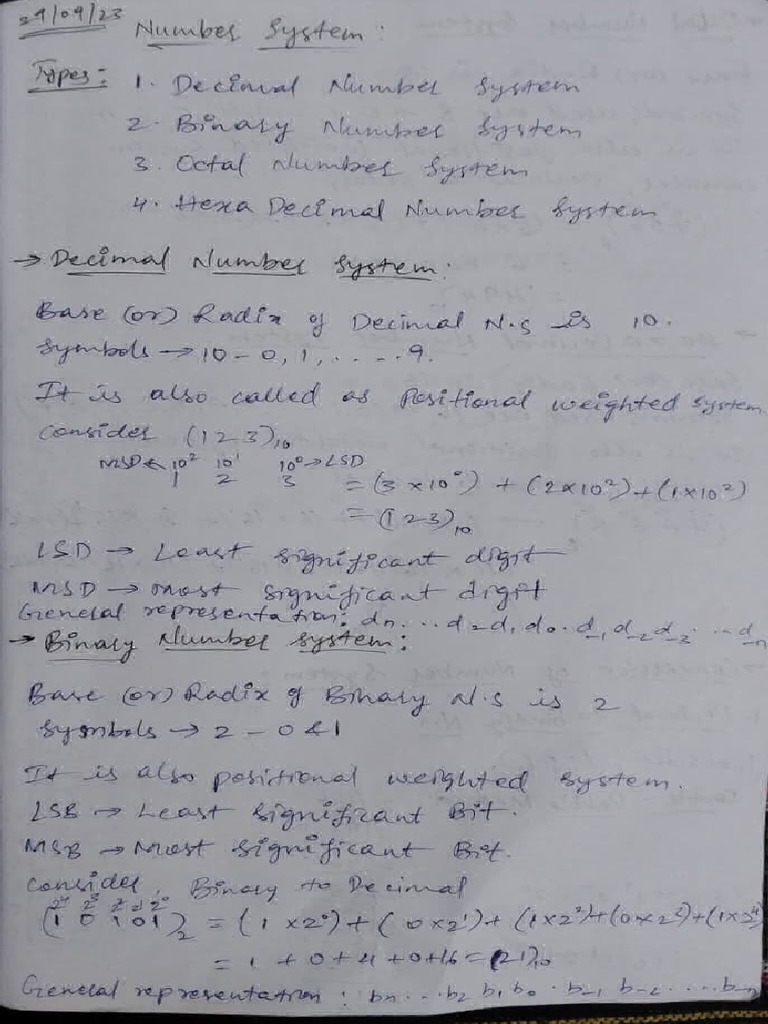 29/09/23
Number System:
Types:- 1. Decimal Number System
2. Binary Number System
3. Octal Number System
4. Hexa Decimal Number System
→ Decimal Number System:
Base (or) Radix of Decimal N.S is 10.
Symbols → 10 - 0, 1, ..... 9.
It is also called as Positional weighted system
Consider (123)₁₀
MSD ← 10² 10¹ 10⁰ → LSD
1 2 3 = (3 x 10⁰) + (2x10²) + (1x10²)
= (123)₁₀
LSD → Least significant digit
MSD → most significant digit
General representation: dn... d2 d1 d0. d-1 d-2 d-3 ... d-n
→ Binary Number system:
Base (or) Radix of Binary N.S is 2
Symbols → 2 - 0 & 1
It is also positional weighted system.
LSB → Least significant Bit.
MSB → Most significant Bit.
Consider, Binary to Decimal
2⁴ 2³ 2² 2¹ 2⁰
(1 0 1 0 1)₂ = (1 x2⁰) + (0x2¹) + (1x2²)+(0x2³)+(1x2⁴)
= 1 + 0 + 4 + 0 + 16 = (21)₁₀
General representation : bn... b2 b1 b0 . b-1 b-2 .... b-n